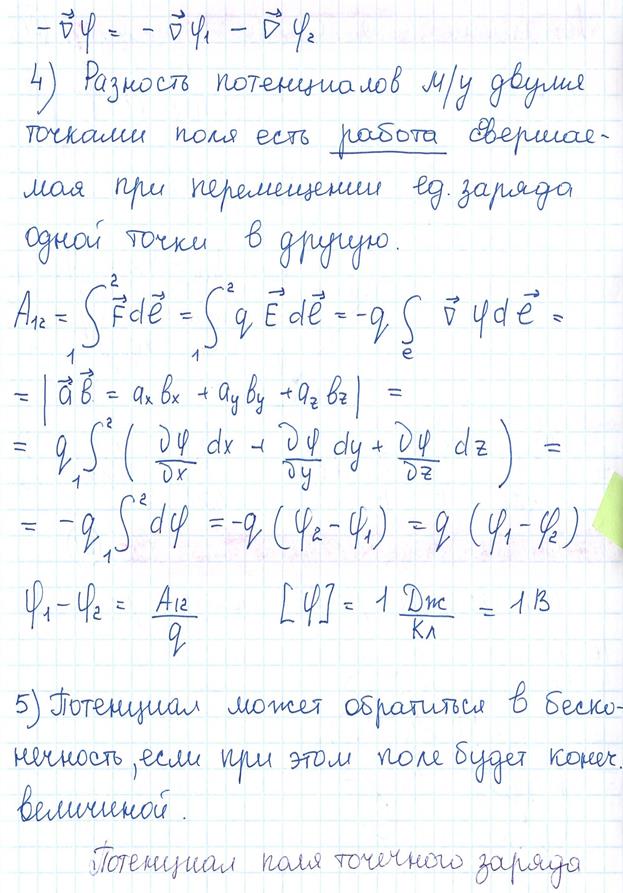 -∇⃗φ = - ∇⃗φ₁ - ∇⃗φ₂
4) Разность потенциалов м/у двумя
точками поля есть работа свершае-
мая при перемещении ед. заряда
одной точки в другую.
A₁₂ = ₁∫² F⃗ dℓ⃗ = ₁∫² q E⃗ dℓ⃗ = -q ∫ₑ ∇⃗ φ dℓ⃗ =
= | a⃗ b⃗ = aₓbₓ + aᵧbᵧ + a_z b_z | =
= q ₁∫² ( ∂φ/∂x dx + ∂φ/∂y dy + ∂φ/∂z dz ) =
= -q ₁∫² dφ = -q (φ₂ - φ₁) = q (φ₁ - φ₂)
φ₁ - φ₂ = A₁₂/q [φ] = 1 Дж/Кл = 1 В
5) Потенциал может обратиться в беско-
нечность, если при этом поле будет конеч.
величиной.
Потенциал поля точечного заряда